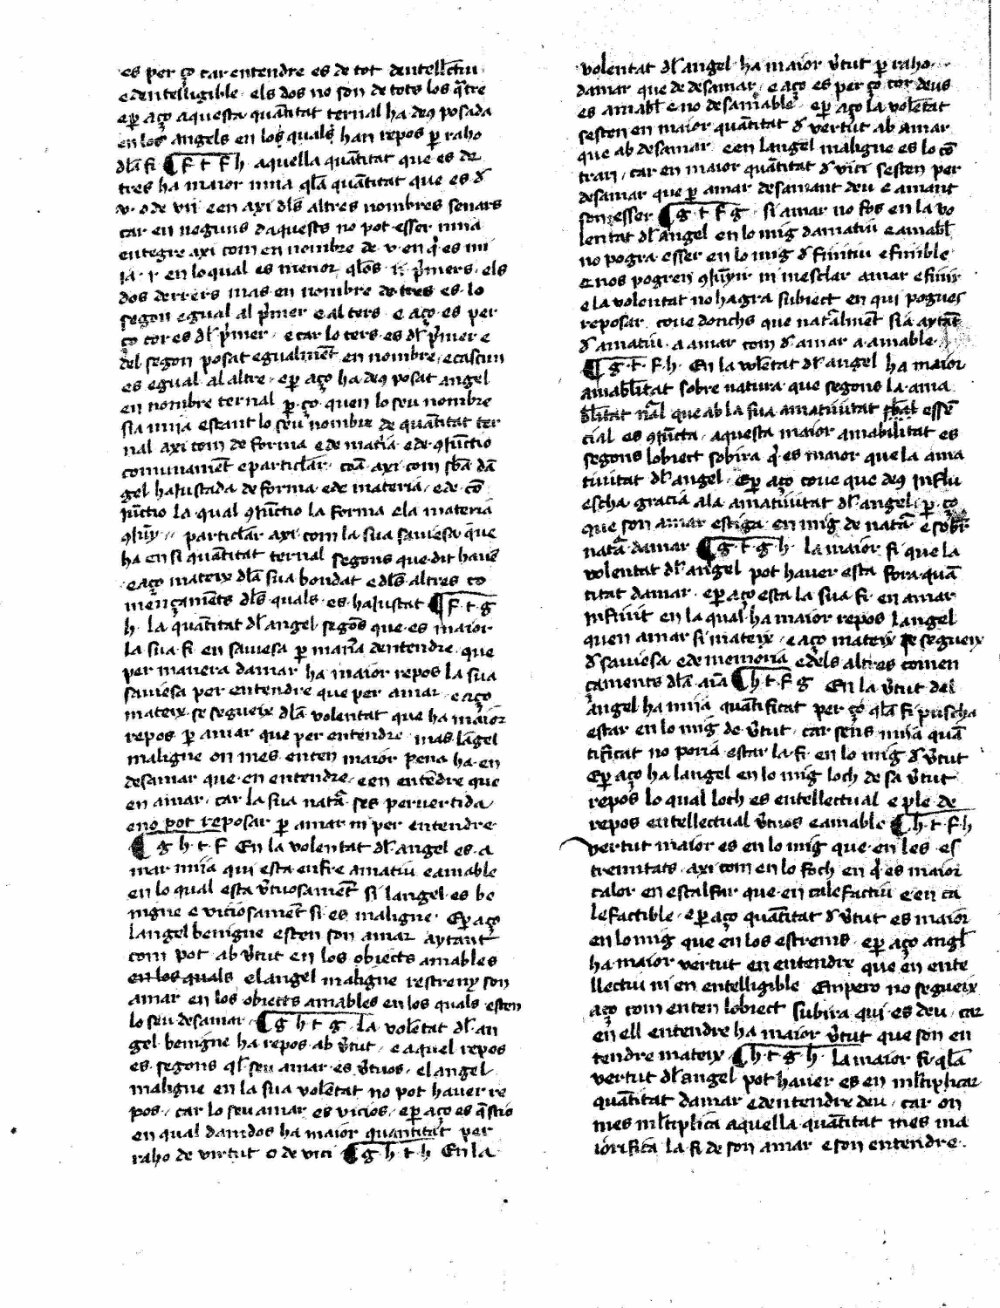 es per ço car entendre es de tot dentellectiu
e dentelligible · els dos no son de tots los q̄tre
e ꝑ aço aquesta quātitat ternal ha deꝯ posada
en los angels en los quals han repos ꝑ raho
dla fi ¶ f t f h aquella quātitat que es de
tres ha maior mija q̄la quātitat que es d̄
v · o de vii e en axi dls altres nombres senars
car en neguns daquests no pot esser mija
entegre axi com en nombre de v · en q̄ es mi
ja · j · en lo qual es menor q̄los ii p̄mers · els
dos derrers mas en nombre de tres es lo
segon egual al p̄mer e al ters · e aço es per
ço cor es dl p̄mer · e car lo ters es dl p̄mer e
del segon posat egualmēt en nombre · e cascun
es egual al altre · e ꝑ aço ha deꝯ posat angel
en nombre ternal ꝑ ço quen lo seu nombre
sia mija estant lo seu nombre de quātitat ter
nal axi com de forma e de mat̄ia e de ꝯjūctio
comunamēt e particlar · com̄ axi com sb̄a dā
gel hajustada de forma e de materia · e de cō
jūctio la qual ꝯjūctio la forma e la materia
particlar axi com la sua saviesa q̄ue
ha en si quātitat ternal segons que dit havē
e aço mateix dla sua bondat e dls altres co
mēçamēts dls quals es hajustat ¶ f t g
h · la quātitat dl angel segōs que es maior
la sua fi en saviesa ꝑ man̄a dentendre que
per manera damar ha maior repos la sua
saviesa per entendre que per amar · e aço
mateix se segueix dla volentat que ha maior
repos ꝑ amar que per entendre mas lāgel
maligne on mes enten maior pena ha en
desamar que en entendre · e en entēdre que
en amar · car la sua natā ses pervertida
e no pot reposar ꝑ amar ni per entendre
¶ g h t f En la volentat dl angel es a
mar mija qui esta enfre amatiu e amable
en lo qual esta v̄tuosamēt si langel es be
nigne e viciosamēt si es maligne · E ꝑ aço
langel benigne esten son amar aytant
com pot ab v̄tut en los obiects amables
en los quals el angel maligne restreny son
amar en los obiects amables en los quals esten
lo seu desamar · ¶ g h t g · La volētat dl an
gel benigne ha repos ab v̄tut · e aquel repos
es segons ql seu amar es v̄tuos · el angel
maligne en la sua volētat no pot haver re
pos · car lo seu amar es vicios · e ꝑ aço es q̄stio
en qual damdos ha maior quantitat per
raho de virtut o de vici ¶ g h t h En la
volentat dl angel ha maior v̄tut ꝑ raho
damar que de desamar · e aço es per ço cor deus
es amabl̄ e no desamable · e ꝑ aço la volētat
sesten en maior quātitat d̄ vertut ab amar
que ab desamar e en langel maligne es lo cō
trari · car en maior quātitat d̄ vici sesten per
desamar que ꝑ amar desamant deu e amant
son esser ¶ g t f g · si amar no fos en la vo
lentat dl angel en lo mig damatiu e amabl̄
no pogra esser en lo mig d̄ finitiu e finible
e nos pogren ꝯjūyir ni mesclar amar e finir
e la volentat no hagra subiect en qui pogues
reposar · cove donchs que natalmēt sia aytāt
d̄ amatiu a amar com d̄ amar a amable ·
¶ g t f h · En la volētat dl angel ha maior
amabl̄itat sobre natura que segons la ama
bl̄itat nal̄ que ab la sua amativitat sbāal essē
cial es ꝯjūcta · aquesta maior amabilitat es
segons lobiect sobira q̄ es maior que la ama
tivitat dl angel · E ꝑ aço cove que deꝯ influ
escha gracia a la amativitat dl angel · ꝑ ço
que son amar estiga en mig de natā e sobr̄
natā damar ¶ g t g h · la maior fi que la
volentat dl angel pot haver esta fora quā
titat damar · e ꝑ aço esta la sua fi en amar
infinit en la qual ha maior repos langel
quen amar si mateix · e aço mateix se segueix
d̄ saviesa e de memoria e dels altres comen
çaments dla aīa ¶ h t f g En la v̄tut del
angel ha mija quantificat per ço q̄la fi puscha
estar en lo mig de v̄tut · car sens mija quā
tificat no poria estar la fi en lo mig d̄ v̄tut
E ꝑ aço ha langel en lo mig loch de sa v̄tut
repos lo qual loch es entellectual e ple de
repos entellectual v̄tuos e amable ¶ h t f h
vertut maior es en lo mig que en les es
tremitats · axi com en lo foch en q̄ es maior
calor en escalfar que en calefactiu e en ca
lefactible · e ꝑ aço quātitat d̄ v̄tut es maior
en lo mig que en los estrems · e ꝑ aço angl̄
ha maior vertut en entendre que en ente
llectiu ni en entelligible Empero no segueix
aço com enten lobiect subira qui es deu · car
en ell entendre ha maior v̄tut que son en
tendre mateix · ¶ h t g h · la maior fi q̄la
vertut dl angel pot haver es en ml̄tiplicar
quātitat damar e dentendre deu · car on
mes ml̄tiplica aquella quātitat mes ma
iorifica la fi de son amar e son entendre ·